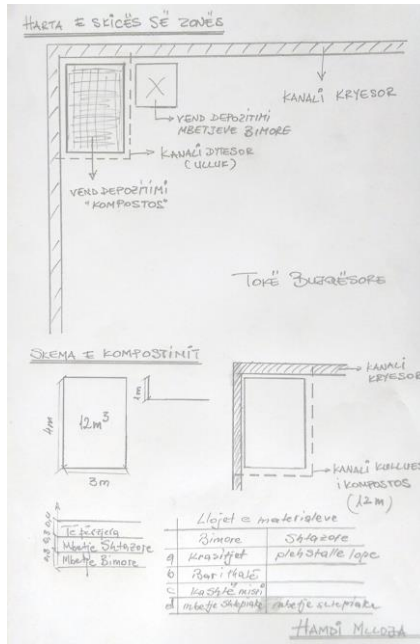 HARTA E SKICËS SË ZONËS
KANALI KRYESOR
X
VEND DEPOZITIMI
MBETJEVE BIMORE
KANALI DYTESOR
(ULLUK)
VEND DEPOZITIMI
"KOMPOSTOS"
TOKË BUJQËSORE
SKEMA E KOMPOSTIMIT
4m
12m³
3m
1m
KANALI
KRYESOR
KANALI KULLUES
I KOMPOSTOS
(12m)
Të përziera
Mbetje Shtazore
Mbetje Bimore
Llojet e materialeve
Bimore Shtazore
a Krasitjet pleh stalle lope
b Bari thatë
c Kashtë misri
d mbetje shtëpiake mbetje shtëpiake
HAMDI